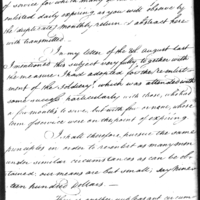 of service for which many of
enlisted daily expiring, as you will observe by
the duplicate monthly return & abstract here
with transmitted.
In my letter of the 3d august last
I mentioned this subject very fully, together with
the means I had adopted for the reenlist
ment of the soldiery, which was attended with
some success particularly with those, who had
a few months to serve, but with few or none, whose
term of service was on the point of expiring
I shall therefore pursue the same
principles in order to reenlist as many men
under similar circumstances as can be ob
tained; our means are but small; say
teen hundred dollars —